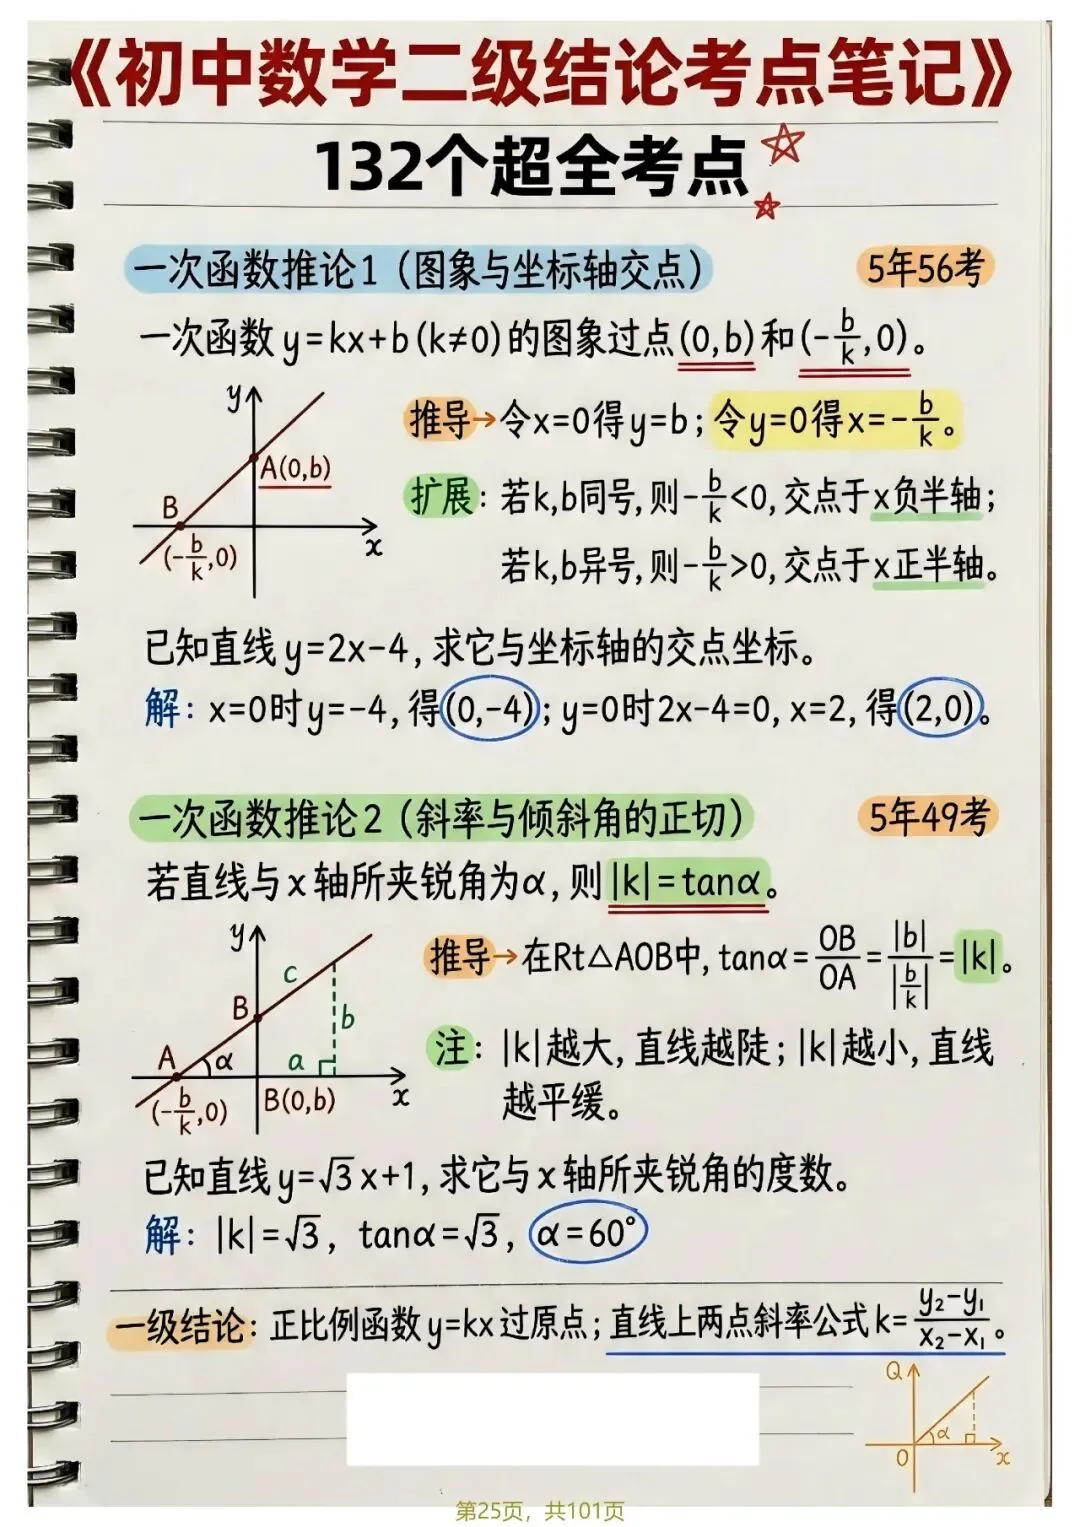 《初中数学二级结论考点笔记》
132个超全考点
一次函数推论1（图象与坐标轴交点） 5年56考
一次函数 y=kx+b(k≠0)的图象过点(0,b)和(-b/k,0)。
y
A(0,b)
B
(-b/k,0)
x
推导→令x=0得y=b；令y=0得x=-b/k。
扩展：若k,b同号,则-b/k<0,交点于x负半轴；
若k,b异号,则-b/k>0,交点于x正半轴。
已知直线 y=2x-4,求它与坐标轴的交点坐标。
解：x=0时y=-4,得(0,-4)；y=0时2x-4=0,x=2,得(2,0)。
一次函数推论2（斜率与倾斜角的正切） 5年49考
若直线与x轴所夹锐角为α,则|k|=tanα。
y
c
B
b
A
α
a
(-b/k,0)
B(0,b)
x
推导→在Rt△AOB中,tanα=OB/OA=|b|/|b/k|=|k|。
注：|k|越大,直线越陡；|k|越小,直线
越平缓。
已知直线 y=√3x+1,求它与x轴所夹锐角的度数。
解：|k|=√3, tanα=√3, α=60°
一级结论：正比例函数y=kx过原点；直线上两点斜率公式k=y₂-y₁/x₂-x₁。
Q
α
O
x
第25页，共101页